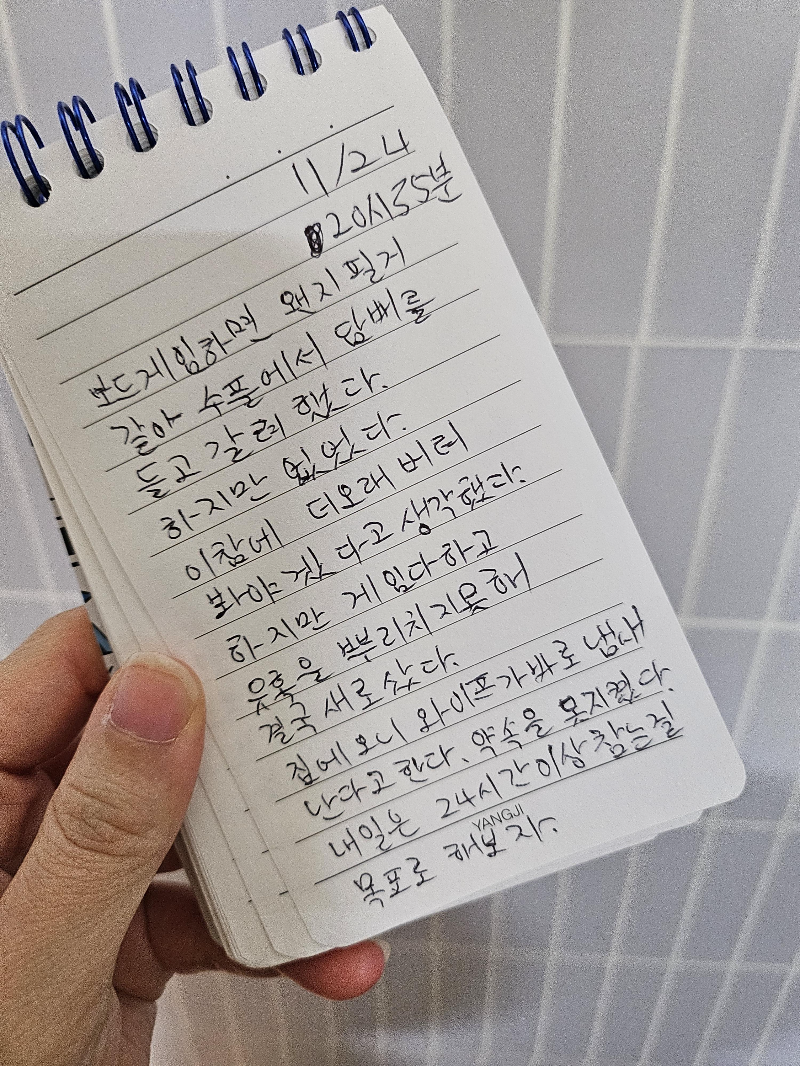 11/24
20시35분
보드게임하면 왠지 필거
같아 수풀에서 담배를
들고 갈려 했다.
하지만 없었다.
이참에 더오래 버텨
봐야 겠다고 생각했다.
하지만 게임다하고
유혹을 뿌리치지못해
결국 새로 샀다.
집에 오니 와이프가 바로 냄새
난다고 한다. 약속을 못지켰다.
내일은 24시간이상 참는걸
YANGJI
목표로 해보자.